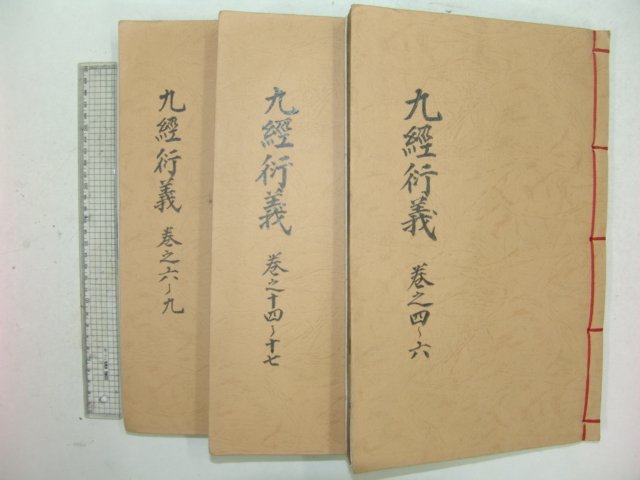 九經衍義 卷之四~六
九經衍義 卷之十四~十七
九經衍義 卷之六~九